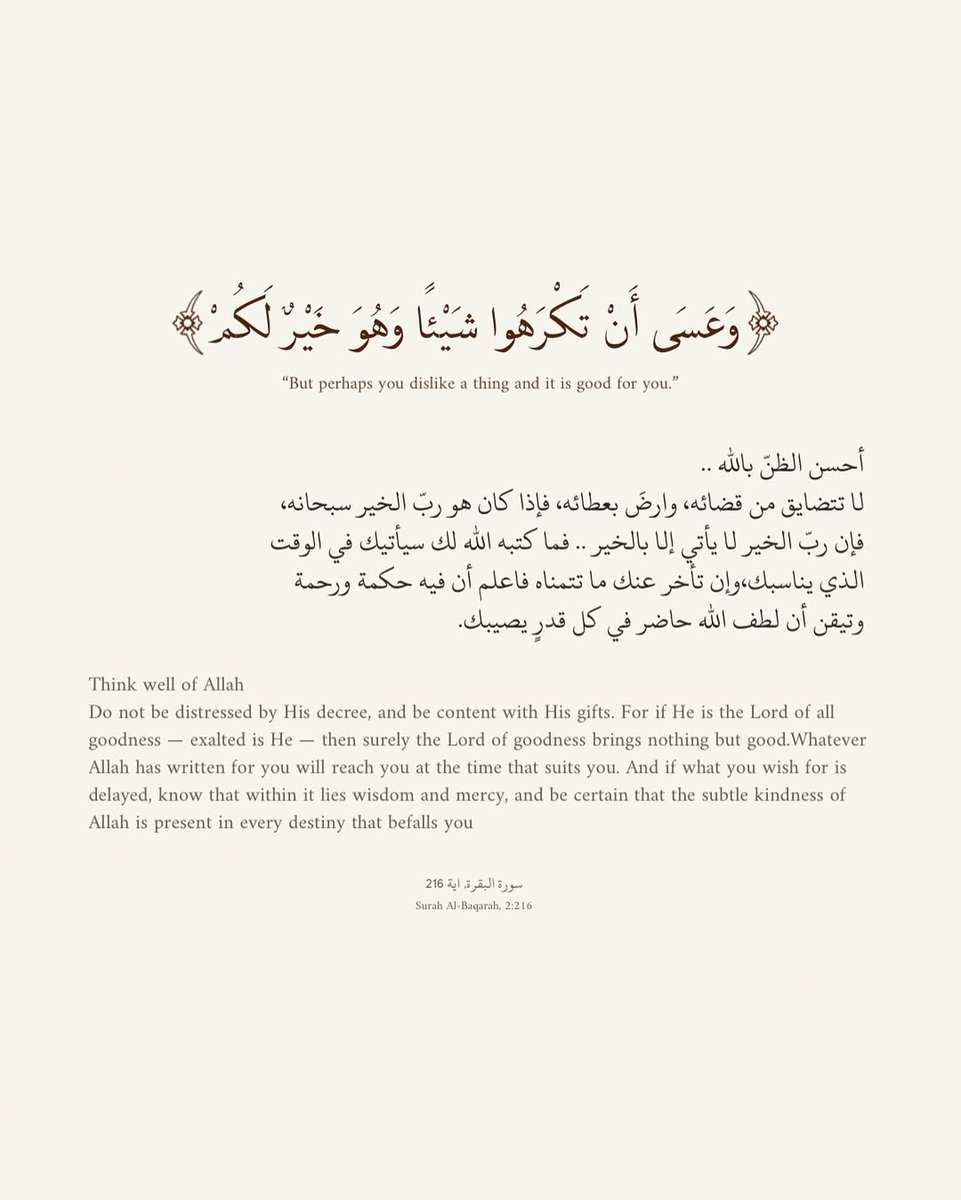 ﴿وَعَسَى أَنْ تَكْرَهُوا شَيْئًا وَهُوَ خَيْرٌ لَكُمْ﴾
“But perhaps you dislike a thing and it is good for you.”
أحسن الظنّ بالله ..
لا تتضايق من قضائه، وارضَ بعطائه، فإذا كان هو ربّ الخير سبحانه،
فإن ربّ الخير لا يأتي إلا بالخير .. فما كتبه الله لك سيأتيك في الوقت
الذي يناسبك،وإن تأخر عنك ما تتمناه فاعلم أن فيه حكمة ورحمة
وتيقن أن لطف الله حاضر في كل قدرٍ يصيبك.
Think well of Allah
Do not be distressed by His decree, and be content with His gifts. For if He is the Lord of all
goodness — exalted is He — then surely the Lord of goodness brings nothing but good.Whatever
Allah has written for you will reach you at the time that suits you. And if what you wish for is
delayed, know that within it lies wisdom and mercy, and be certain that the subtle kindness of
Allah is present in every destiny that befalls you
سورة البقرة, اية 216
Surah Al-Baqarah, 2:216